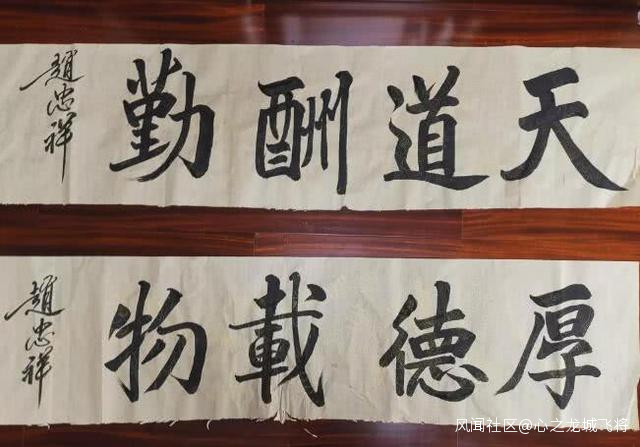 天道酬勤
趙忠祥
厚德載物
趙忠祥
风闻社区@心之龙城飞将